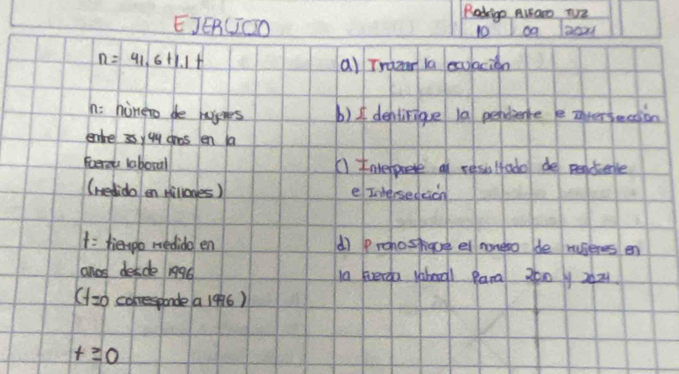 EJERCICIO
Rodrigo Alfaro TUZ
10 09 2021
n= 41.6+1.1t
a) Trazar la ecuación
n: número de mujeres
entre 35 y 44 años en la
fuerza laboral
(medido en millones)
b) Identifique la pendiente e intersección
c) Interprete el resultado de pendiente
e Intersección
t= tiempo medido en
años desde 1996
(t=0 corresponde a 1996)
d) Pronostique el número de mujeres en
la fuerza laboral para y 2021.
t≥0